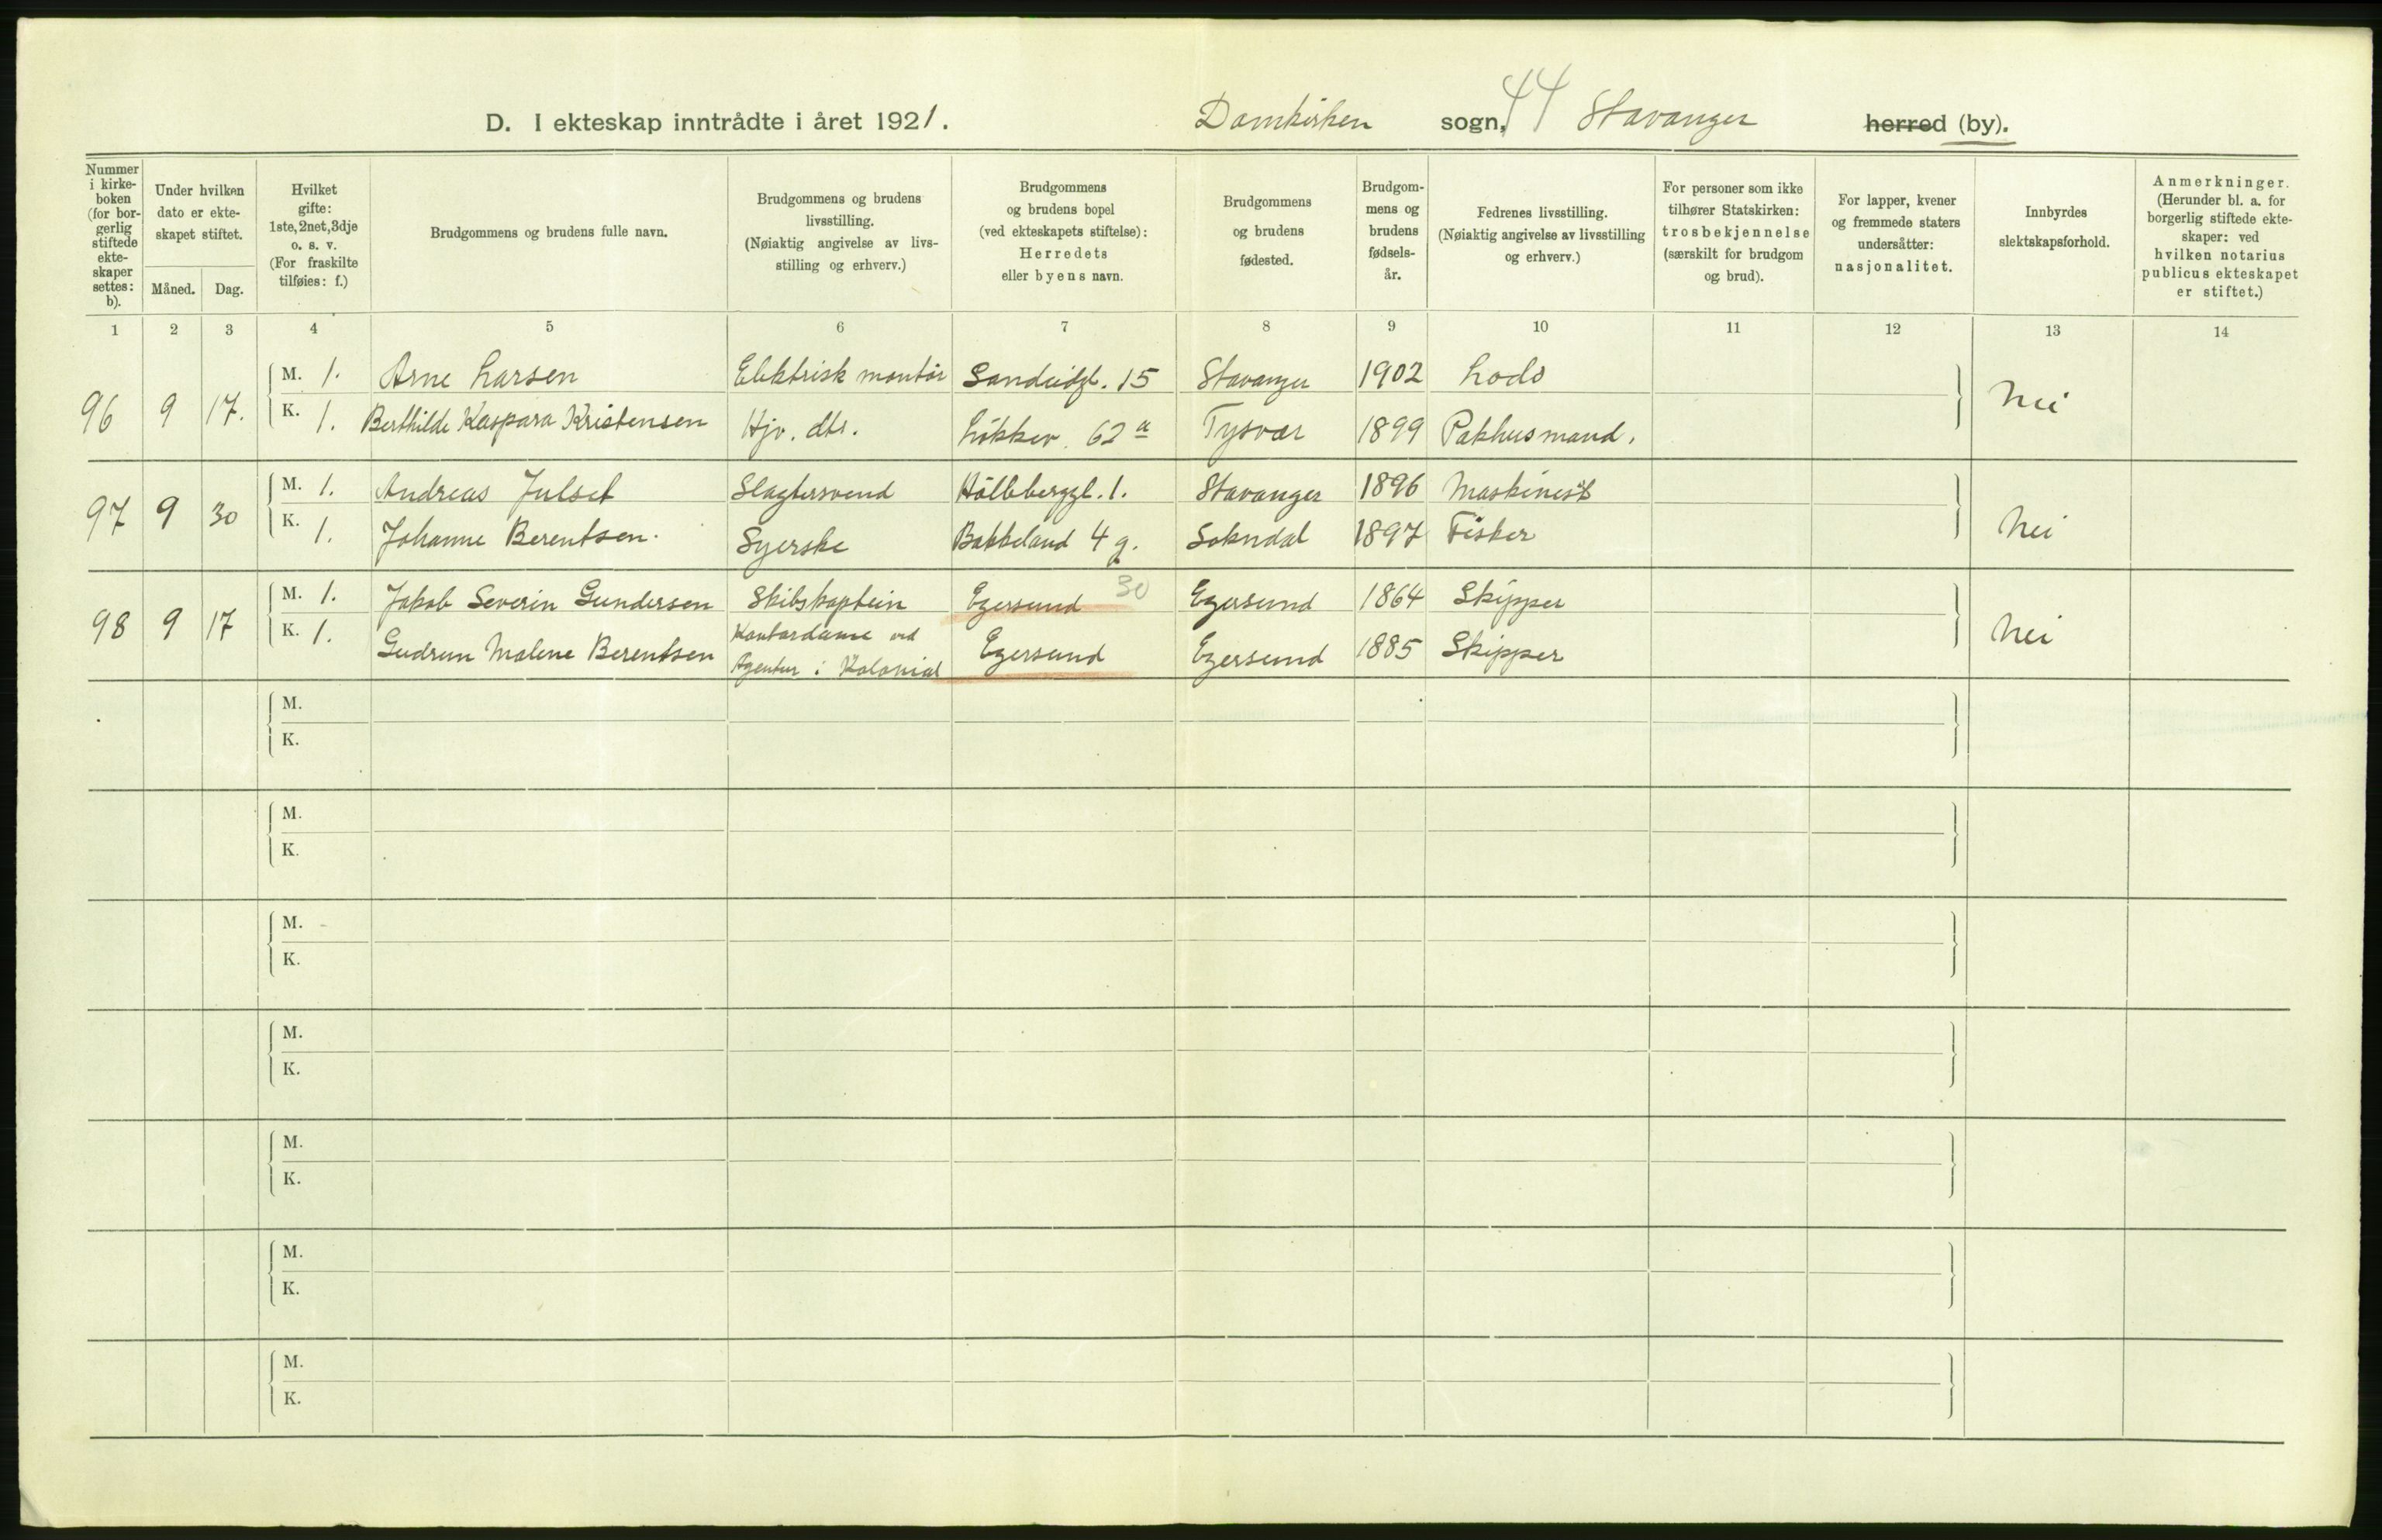 D. I ekteskap inntrådte i året 1921. Domkirken sogn, 44 Stavanger herred (by).
Nummer i kirkeboken (for borgerlig stiftede ekteskaper settes: b).
Under hvilken dato er ekteskapet stiftet.
Måned. Dag.
Hvilket gifte: 1ste, 2net, 3dje o. s. v. (For fraskilte tilføies: f.)
Brudgommens og brudens fulle navn.
Brudgommens og brudens livsstilling. (Nøiaktig angivelse av livsstilling og erhverv.)
Brudgommens og brudens bopel (ved ekteskapets stiftelse): Herredets eller byens navn.
Brudgommens og brudens fødested.
Brudgommens og brudens fødselsår.
Fedrenes livsstilling. (Nøiaktig angivelse av livsstilling og erhverv.)
For personer som ikke tilhører Statskirken: trosbekjennelse (særskilt for brudgom og brud).
For lapper, kvener og fremmede staters undersåtter: nasjonalitet.
Innbyrdes slektskapsforhold.
Anmerkninger. (Herunder bl. a. for borgerlig stiftede ekteskaper: ved hvilken notarius publicus ekteskapet er stiftet.)
1 2 3 4 5 6 7 8 9 10 11 12 13 14
M. 1. Arne Larsen Elektrisk montør Sandeidgt. 15 Stavanger 1902 Lods
96 9 17. Nei
K. 1. Berthilde Kaspara Kristensen Hjv. dtr. Løkkev. 62 a Tysvær 1899 Pakhusmand.
M. 1. Andreas Julset Slagtersvend Höleberggt. 1. Stavanger 1896 Maskinist
97 9 30 Nei
K. 1. Johanne Berentsen. Syerske Bakkeland 4 g. Sokndal 1897 Fisker
M. 1. Jakob Severin Gundersen Skibskaptein Egersund 30 Egersund 1864 Skipper
98 9 17 Nei
K. 1. Gudrun Malene Berentsen Kontordame ved Agentur i Kolonial Egersund Egersund 1885 Skipper
M.
K.
M.
K.
M.
K.
M.
K.
M.
K.
M.
K.
M.
K.